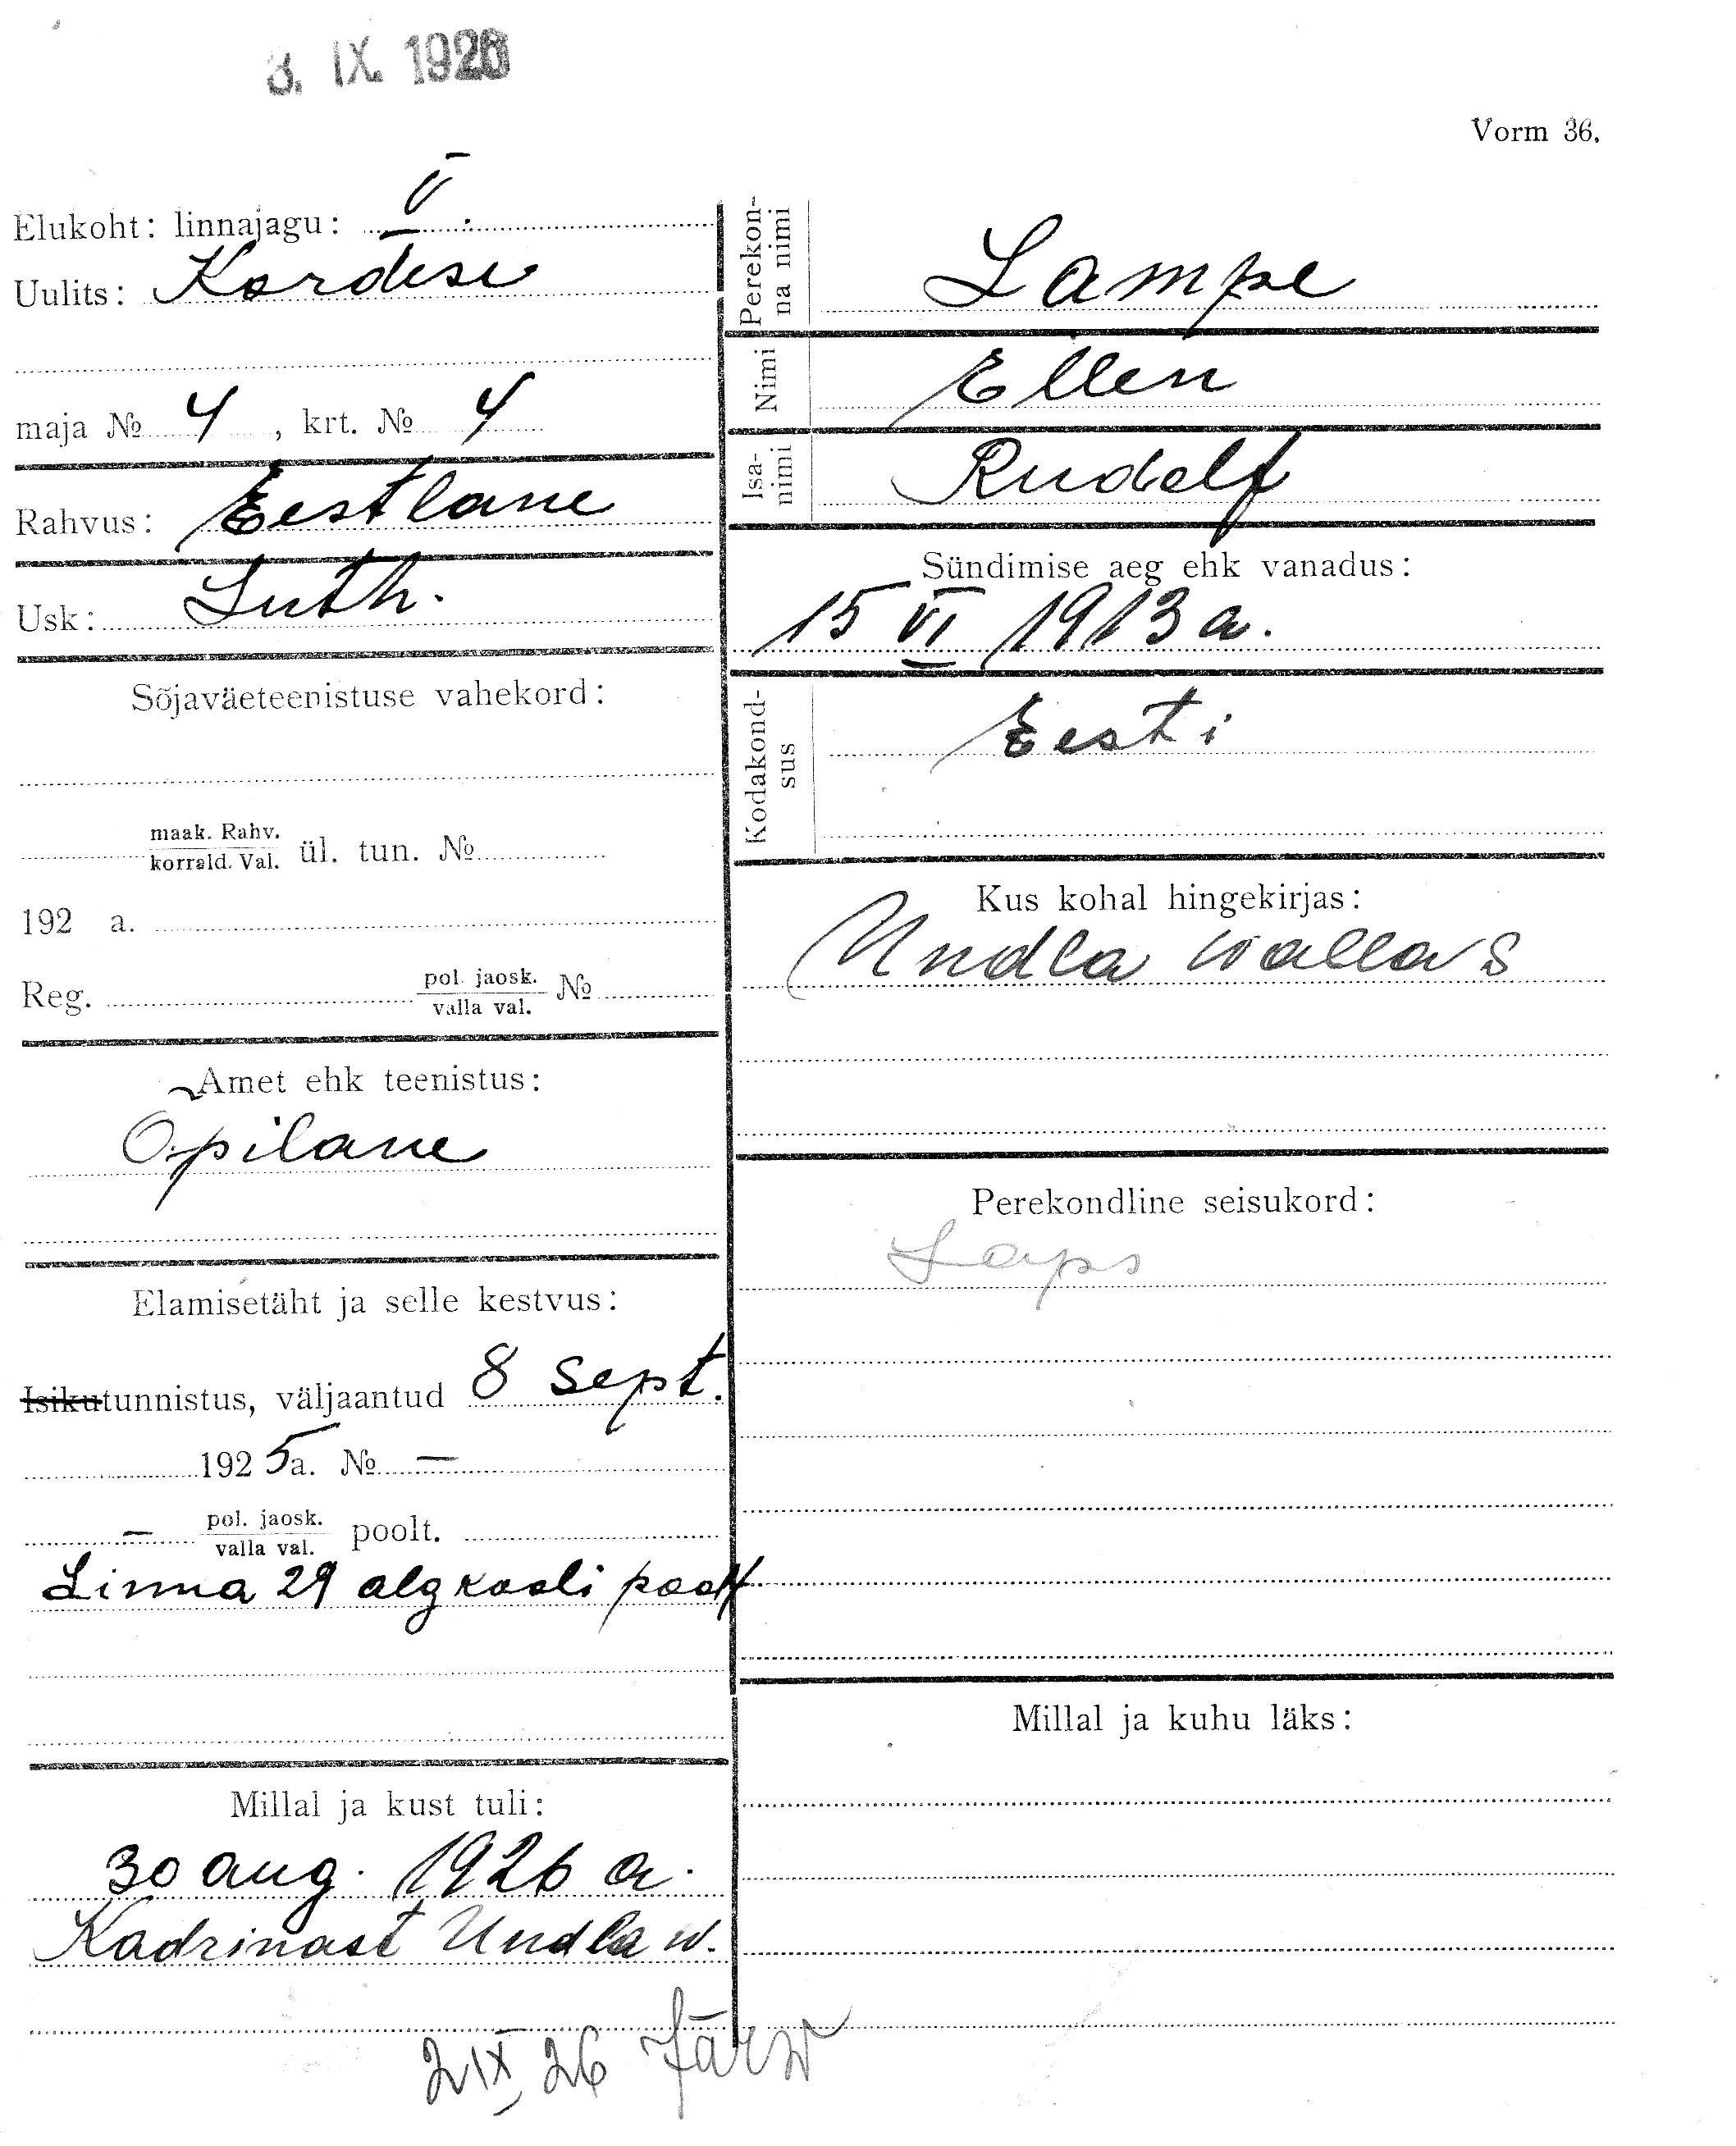 3. IX. 1926
Vorm 36.
Elukoht: linnajagu: V.
Uulits: Kordese
maja № 4, krt. № 4
Rahvus: Eestlane
Usk: Luth.
Sõjaväeteenistuse vahekord:
maak. Rahv.
korrald. Val. ül. tun. №
192 a.
Reg. pol. jaosk.
valla val. №
Amet ehk teenistus:
Õpilane
Elamisetäht ja selle kestvus:
Isikutunnistus, väljaantud 8 sept.
1925 a. № —
— pol. jaosk.
valla val. poolt.
Linna 29 algkooli poolt
Millal ja kust tuli:
30 aug. 1926 a.
Kadrinast Undla w.
2 IX 26 Järw
Perekon-
na nimi
Lampe
Nimi
Ellen
Isa-
nimi
Rudolf
Sündimise aeg ehk vanadus:
15 VI 1913 a.
Kodakond-
sus
Eesti
Kus kohal hingekirjas:
Undla wallas
Perekondline seisukord:
Laps
Millal ja kuhu läks: